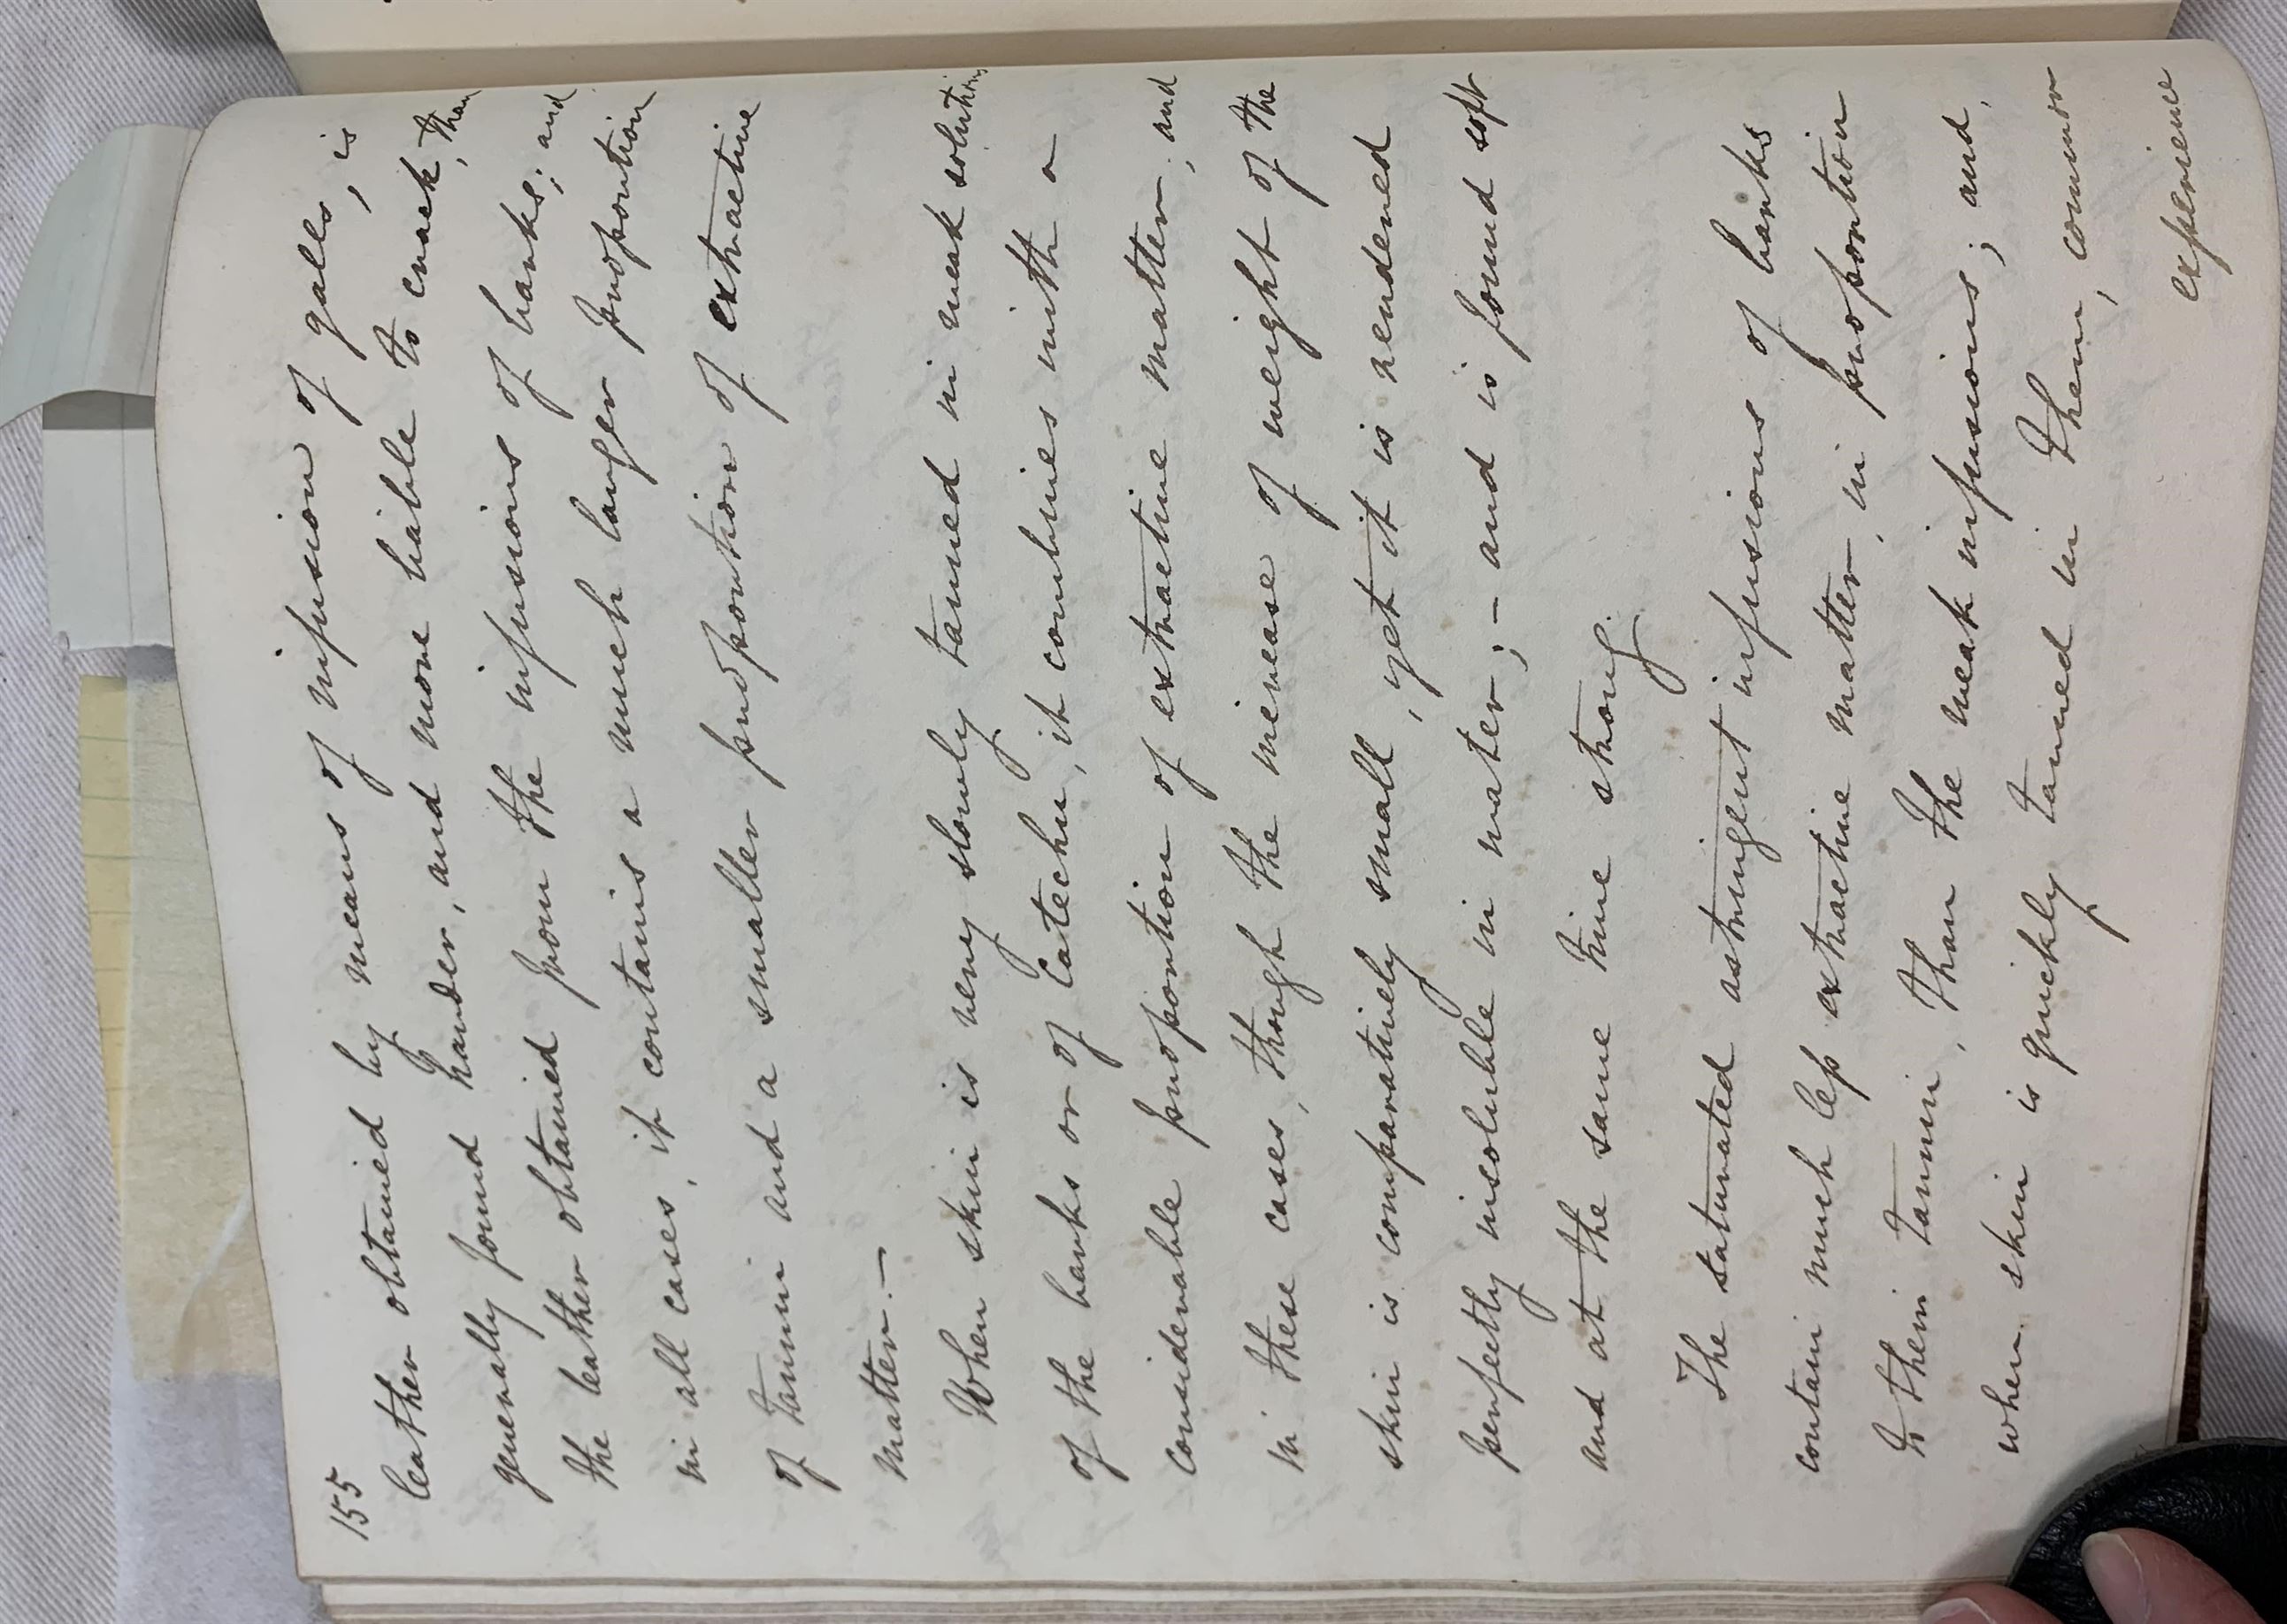 155
leather obtained by means of infusion of galls, is
generally found harder, and more liable to crack, than
the leather obtained from the infusions of barks; and
in all cases, it contains a much larger proportion
of tannin and a smaller proportion of extractive
matter.—
When skin is very slowly tanned in weak solutions
of the barks or of Catechu, it combines with a
considerable proportion of extractive matter; and
in these cases, though the increase of weight of the
skin is comparatively small, yet it is rendered
perfectly insoluble in water;— and is found soft
and at the same time strong.
The saturated astringent infusions of barks
contain much less extractive matter, in proportion
to their tannin, than the weak infusions; and,
when skin is quickly tanned in them, common
experience